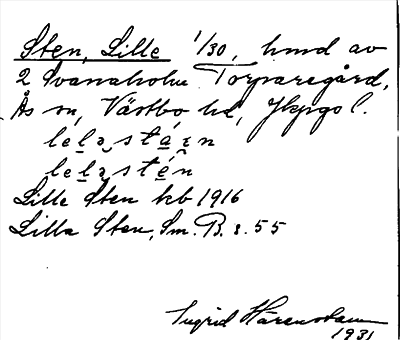 Sten, Lille 1/30, hmd av
2 Svanaholm Torparegård,
Ås sn, Västbo hd, Jkpgs l.
Lille Sten kb 1916
Lilla Sten, Sm. B. s. 55
Ingrid Härenstam
1931